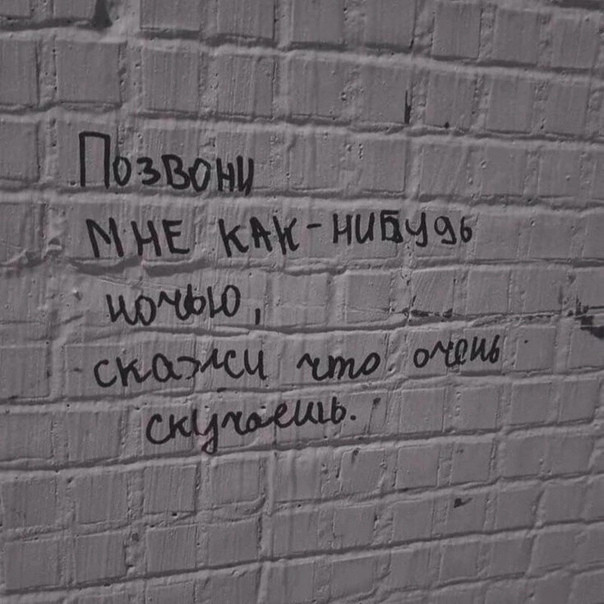 Позвони
мне как-нибудь
ночью,
скажи что очень
скучаешь.